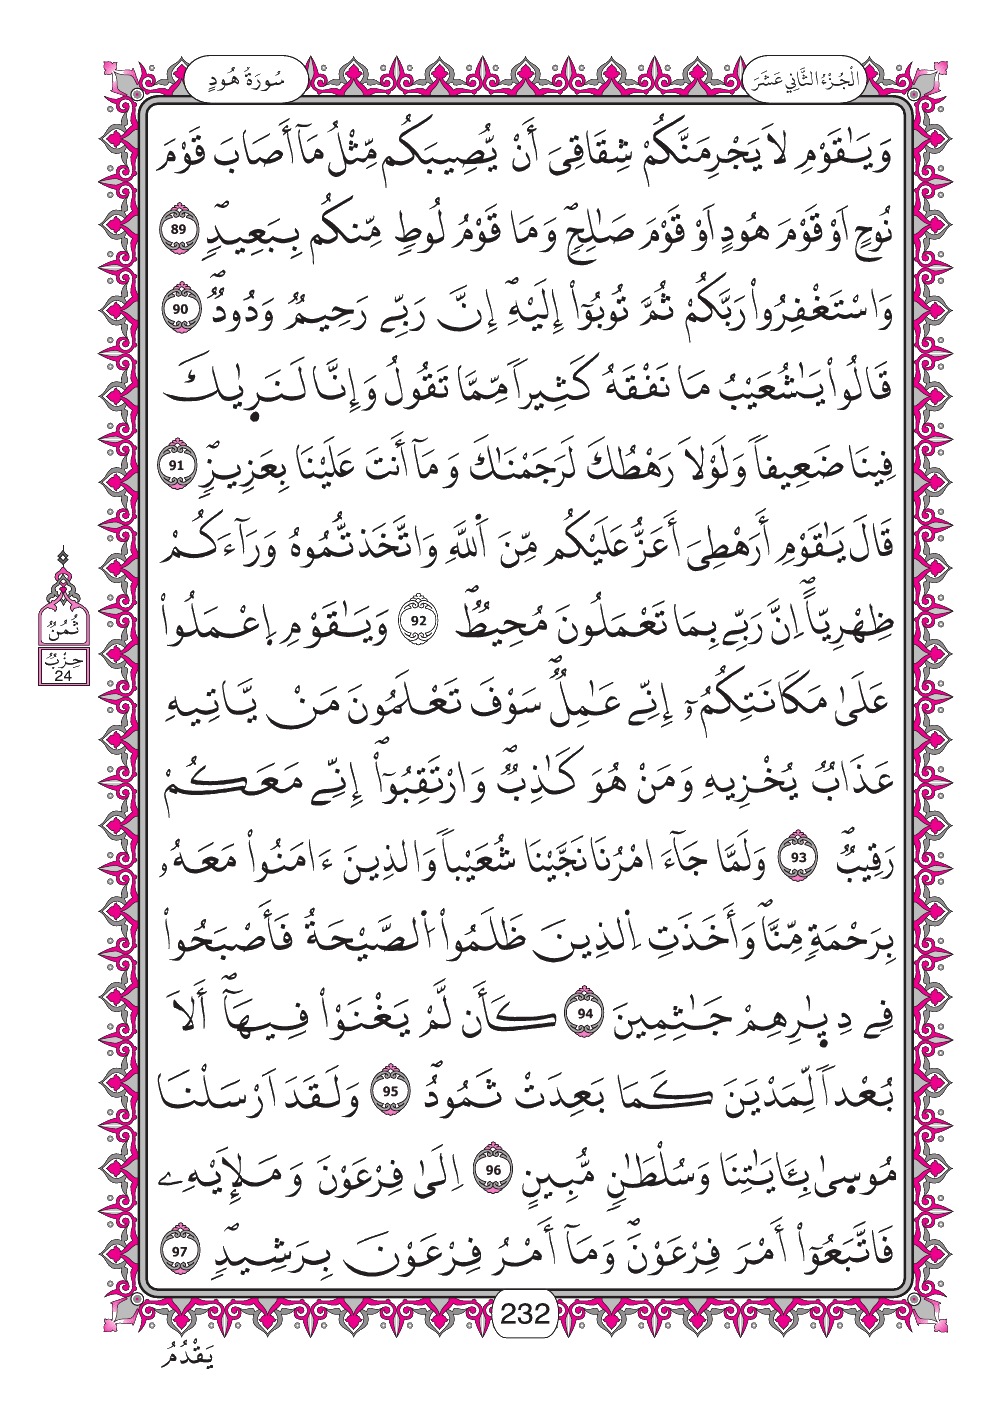 الْجُزْءُ الثَّانِي عَشَرَ
سُورَةُ هُودٍ
وَيَٰقَوْمِ لَا يَجْرِمَنَّكُمْ شِقَاقِيَ أَنْ يُّصِيبَكُم مِّثْلُ مَآ أَصَابَ قَوْمَ
نُوحٍ اَوْ قَوْمَ هُودٍ اَوْ قَوْمَ صَٰلِحٍۖ وَمَا قَوْمُ لُوطٍ مِّنكُم بِبَعِيدٍۖ 89
وَاسْتَغْفِرُواْ رَبَّكُمْ ثُمَّ تُوبُوٓاْ إِلَيْهِۖ إِنَّ رَبِّے رَحِيمٌ وَدُودٌۖ 90
قَالُواْ يَٰشُعَيْبُ مَا نَفْقَهُ كَثِيراً مِّمَّا تَقُولُ وَإِنَّا لَنَرٜيٰكَ
فِينَا ضَعِيفاً وَلَوْلَا رَهْطُكَ لَرَجَمْنَٰكَ وَمَآ أَنتَ عَلَيْنَا بِعَزِيزٍۖ 91
قَالَ يَٰقَوْمِ أَرَهْطِيَ أَعَزُّ عَلَيْكُم مِّنَ اَ۬للَّهِ وَاتَّخَذتُّمُوهُ وَرَآءَكُمْ
ظِهْرِيّاًۖ اِنَّ رَبِّے بِمَا تَعْمَلُونَ مُحِيطٌۖ 92 وَيَٰقَوْمِ اِ۪عْمَلُواْ
عَلَىٰ مَكَانَتِكُمُۥٓ إِنِّے عَٰمِلٌۖ سَوْفَ تَعْلَمُونَ مَنْ يَّاتِيهِ
عَذَابٌ يُخْزِيهِ وَمَنْ هُوَ كَٰذِبٌۖ وَارْتَقِبُوٓاْۖ إِنِّے مَعَكُمْ
رَقِيبٌۖ 93 وَلَمَّا جَآءَ امْرُنَا نَجَّيْنَا شُعَيْباً وَالذِينَ ءَامَنُواْ مَعَهُۥ
بِرَحْمَةٍ مِّنَّاۖ وَأَخَذَتِ اِ۬لذِينَ ظَلَمُواْ اُ۬لصَّيْحَةُ فَأَصْبَحُواْ
فِے دِيٰٜرِهِمْ جَٰثِمِينَ 94 كَأَن لَّمْ يَغْنَوْاْ فِيهَآۖ أَلَا
بُعْداً لِّمَدْيَنَ كَمَا بَعِدَتْ ثَمُودُۖ 95 وَلَقَدَ اَرْسَلْنَا
مُوسٜىٰ بِـَٔايَٰتِنَا وَسُلْطَٰنٍ مُّبِينٍ 96 اِلَىٰ فِرْعَوْنَ وَمَلَإِيْهِۦ
فَاتَّبَعُوٓاْ أَمْرَ فِرْعَوْنَۖ وَمَآ أَمْرُ فِرْعَوْنَ بِرَشِيدٍۖ 97
ثُمُنٌ
حِزْبٌ
24
232
يَقْدُمُ